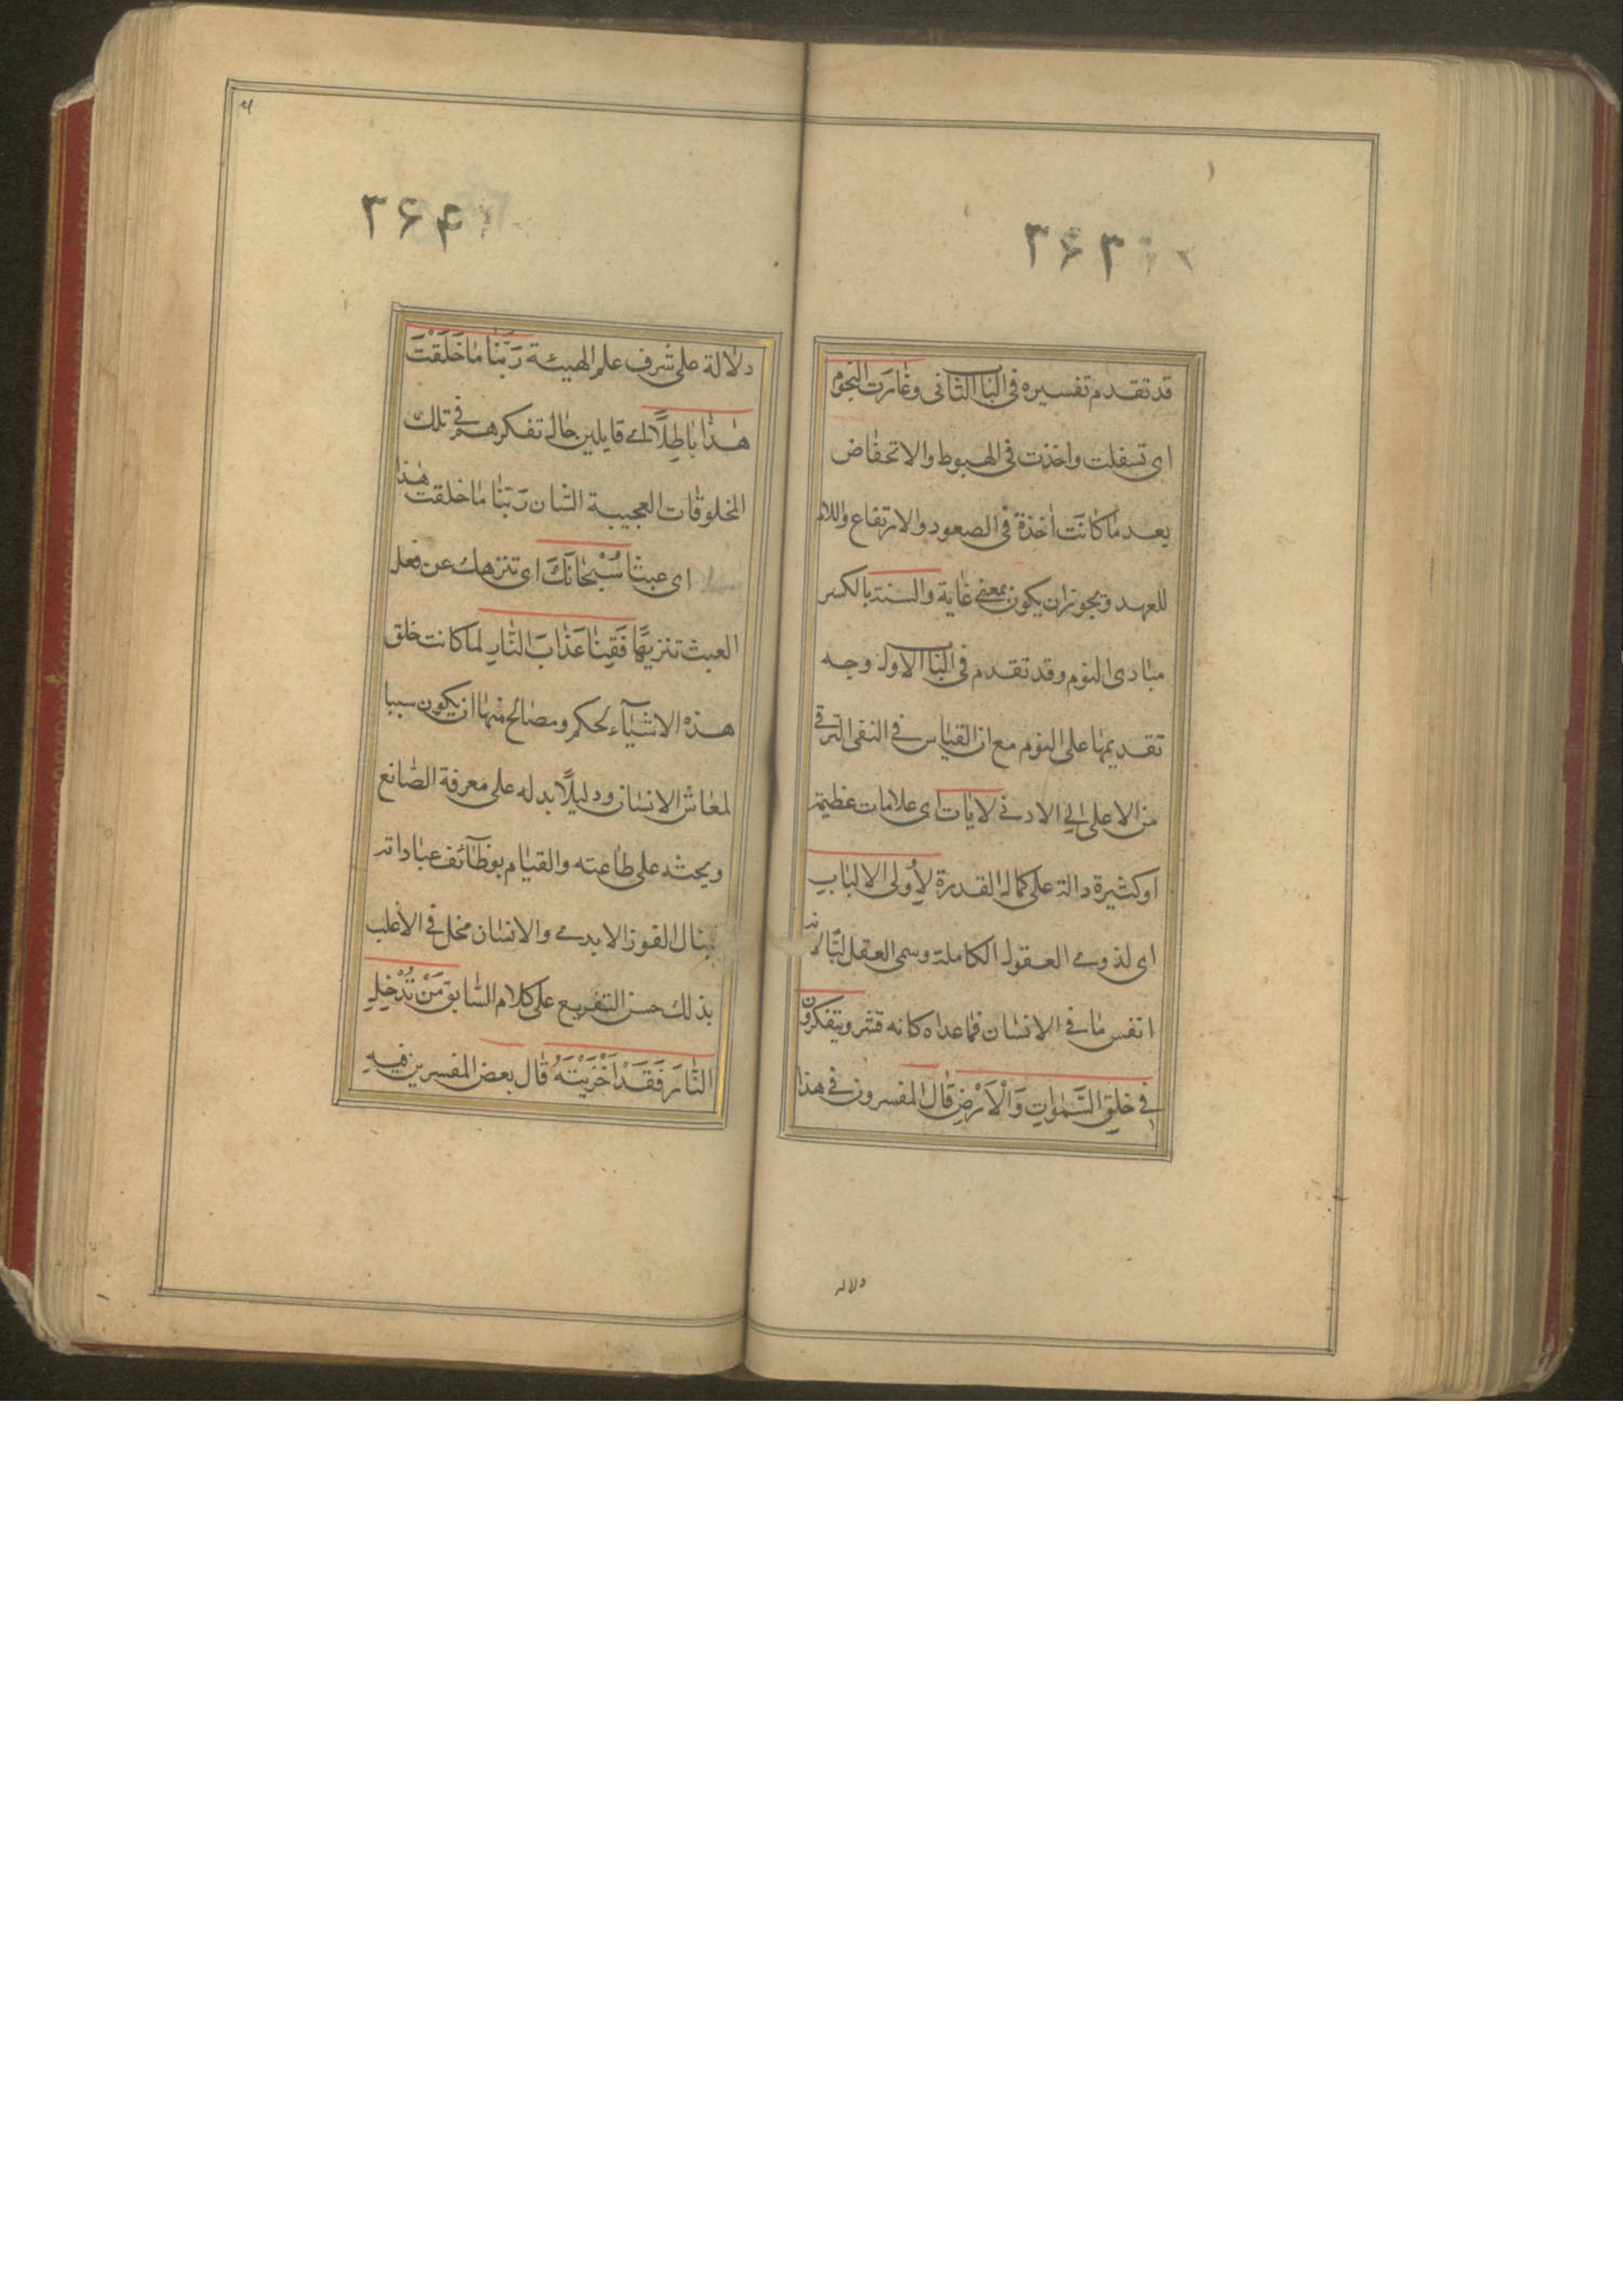 ۳۶۳
قد تقدم تفسيره فى الباب الثانى وغارت النجوم
اى تسفلت واخذت فى الهبوط والانخفاض
بعد ما كانت اخذة فى الصعود والارتفاع واللام
للعهد ويجوز ان يكون بمعنى غابة والسنة بالكسر
مبادى النوم وقد تقدم فى الباب الاول وجه
تقديمها على النوم مع ان القياس فى النفى الترقى
من الاعلى الى الادنى لايات اى علامات عظيمة
او كثيرة دالة على كمال القدرة لِاُولى الالبابِ
اى لذوى العقول الكاملة وسمى العقل لبّا لانه
انفس ما فى الانسان فما عداه كانه قشر ويتفكرون
فى خلقِ السَّمٰواتِ وَالْاَرْضِ قال المفسرون فى هذا
دلالة
۳۶۴
دلالة على شرف علم الهيئة رَبَّنا مٰا خَلَقْتَ
هٰذٰا بٰاطِلًا اى قايلين حال تفكرهم فى تلك
المخلوقات العجيبة الشان رَبّنا ما خلقت هٰذا
اى عبثا سُبْحٰانَكَ اى تنزهك عن فعل
العبث تنزيهًا فَقِنٰا عَذٰابَ النّٰارِ لما كانت خلق
هذه الاشيآء لحكم ومصالح منها ان يكون سببا
لمعاش الانسان ودليلًا يدله على معرفة الصّانع
ويحثه على طاعته والقيام بوظآئف عباداته
لينال الفوز الابدى والانسان مخل فى الاغلب
بذلك حسن التفريع على كلام السّابق مَنْ تُدْخِلِ
النّٰارَ فَقَدْ اَخْزَيْتَهُ قال بعض المفسرين فيه